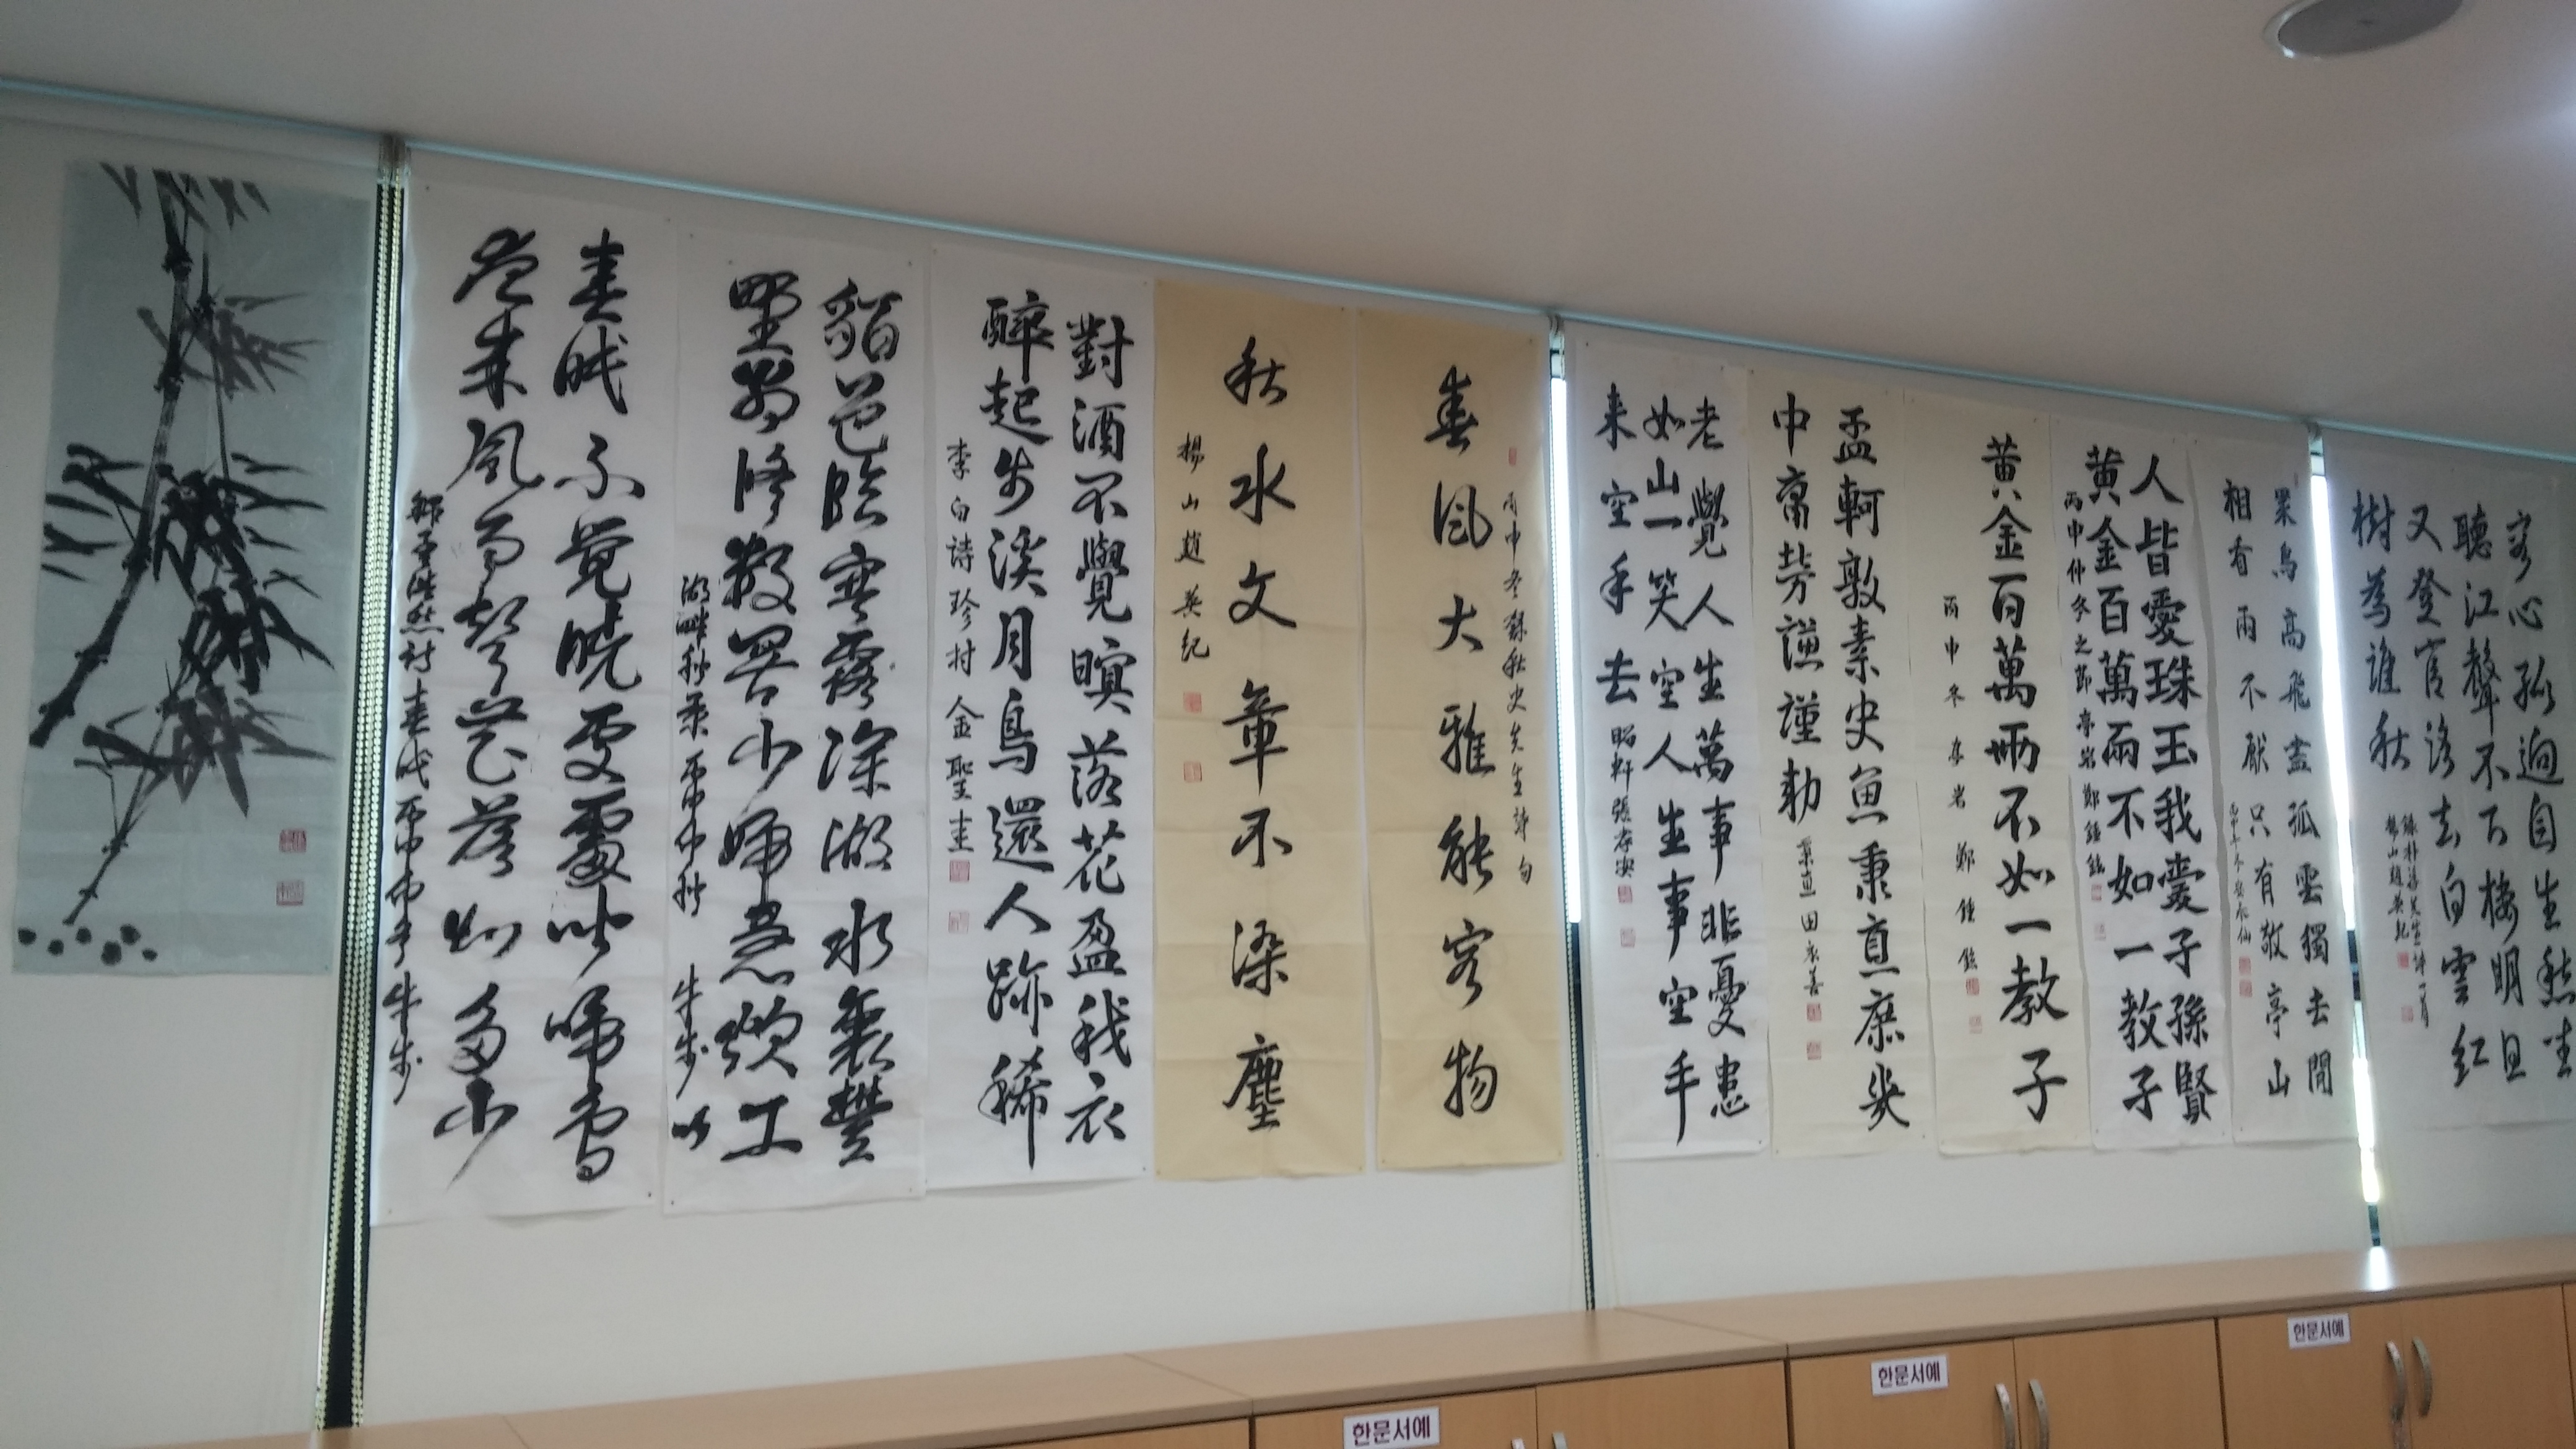 客心孤逈自生愁坐
聽江聲不下楼明日
又登官路去白雲紅
樹為誰秋
楊山趙英紀
眾鳥高飛盡孤雲獨去閒
相看兩不厭只有敬亭山
人皆愛珠玉我愛子孫賢
黃金百萬兩不如一教子
丙申仲冬之節亭岩鄭鍾鉉
黃金百萬兩不如一教子
丙申冬亭岩鄭鍾鉉
孟軻敦素史魚秉直庶幾
中庸勞謙謹勅
老覺人生萬事非憂患
如山一笑空人生事空手
来空手去
丙申冬錄秋史先生詩句
春風大雅能容物
秋水文章不染塵
楊山趙英紀
對酒不覺暝落花盈我衣
醉起步溪月鳥還人跡稀
李白詩珍村金聖圭
湖畔秋景丙申仲秋牛步
春眠不覺曉處處聞啼鳥
夜来風雨聲花落知多少
한문서예
한문서예
한문서예